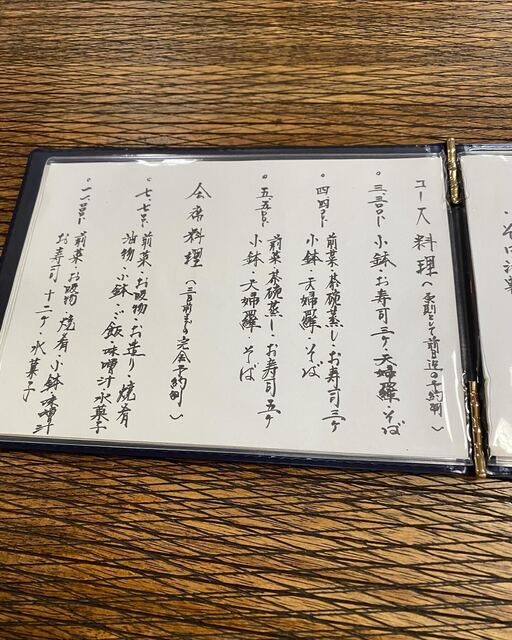 コース料理(原則として前日迄の予約制)
。三、三〇〇 小鉢・お寿司三ヶ・天婦羅・そば
。四、四〇〇 前菜・茶碗蒸し・お寿司三ヶ
小鉢・天婦羅・そば
。五、五〇〇 前菜・茶碗蒸し・お寿司五ヶ
小鉢・天婦羅・そば
会席料理(三日前までの完全予約制)
。七、七〇〇 前菜・お吸物・お造り・焼肴
油物・小鉢・ご飯・味噌汁・水菓子
。一一、〇〇〇 前菜・お吸物・焼肴・小鉢・味噌汁
お寿司十二ヶ・水菓子